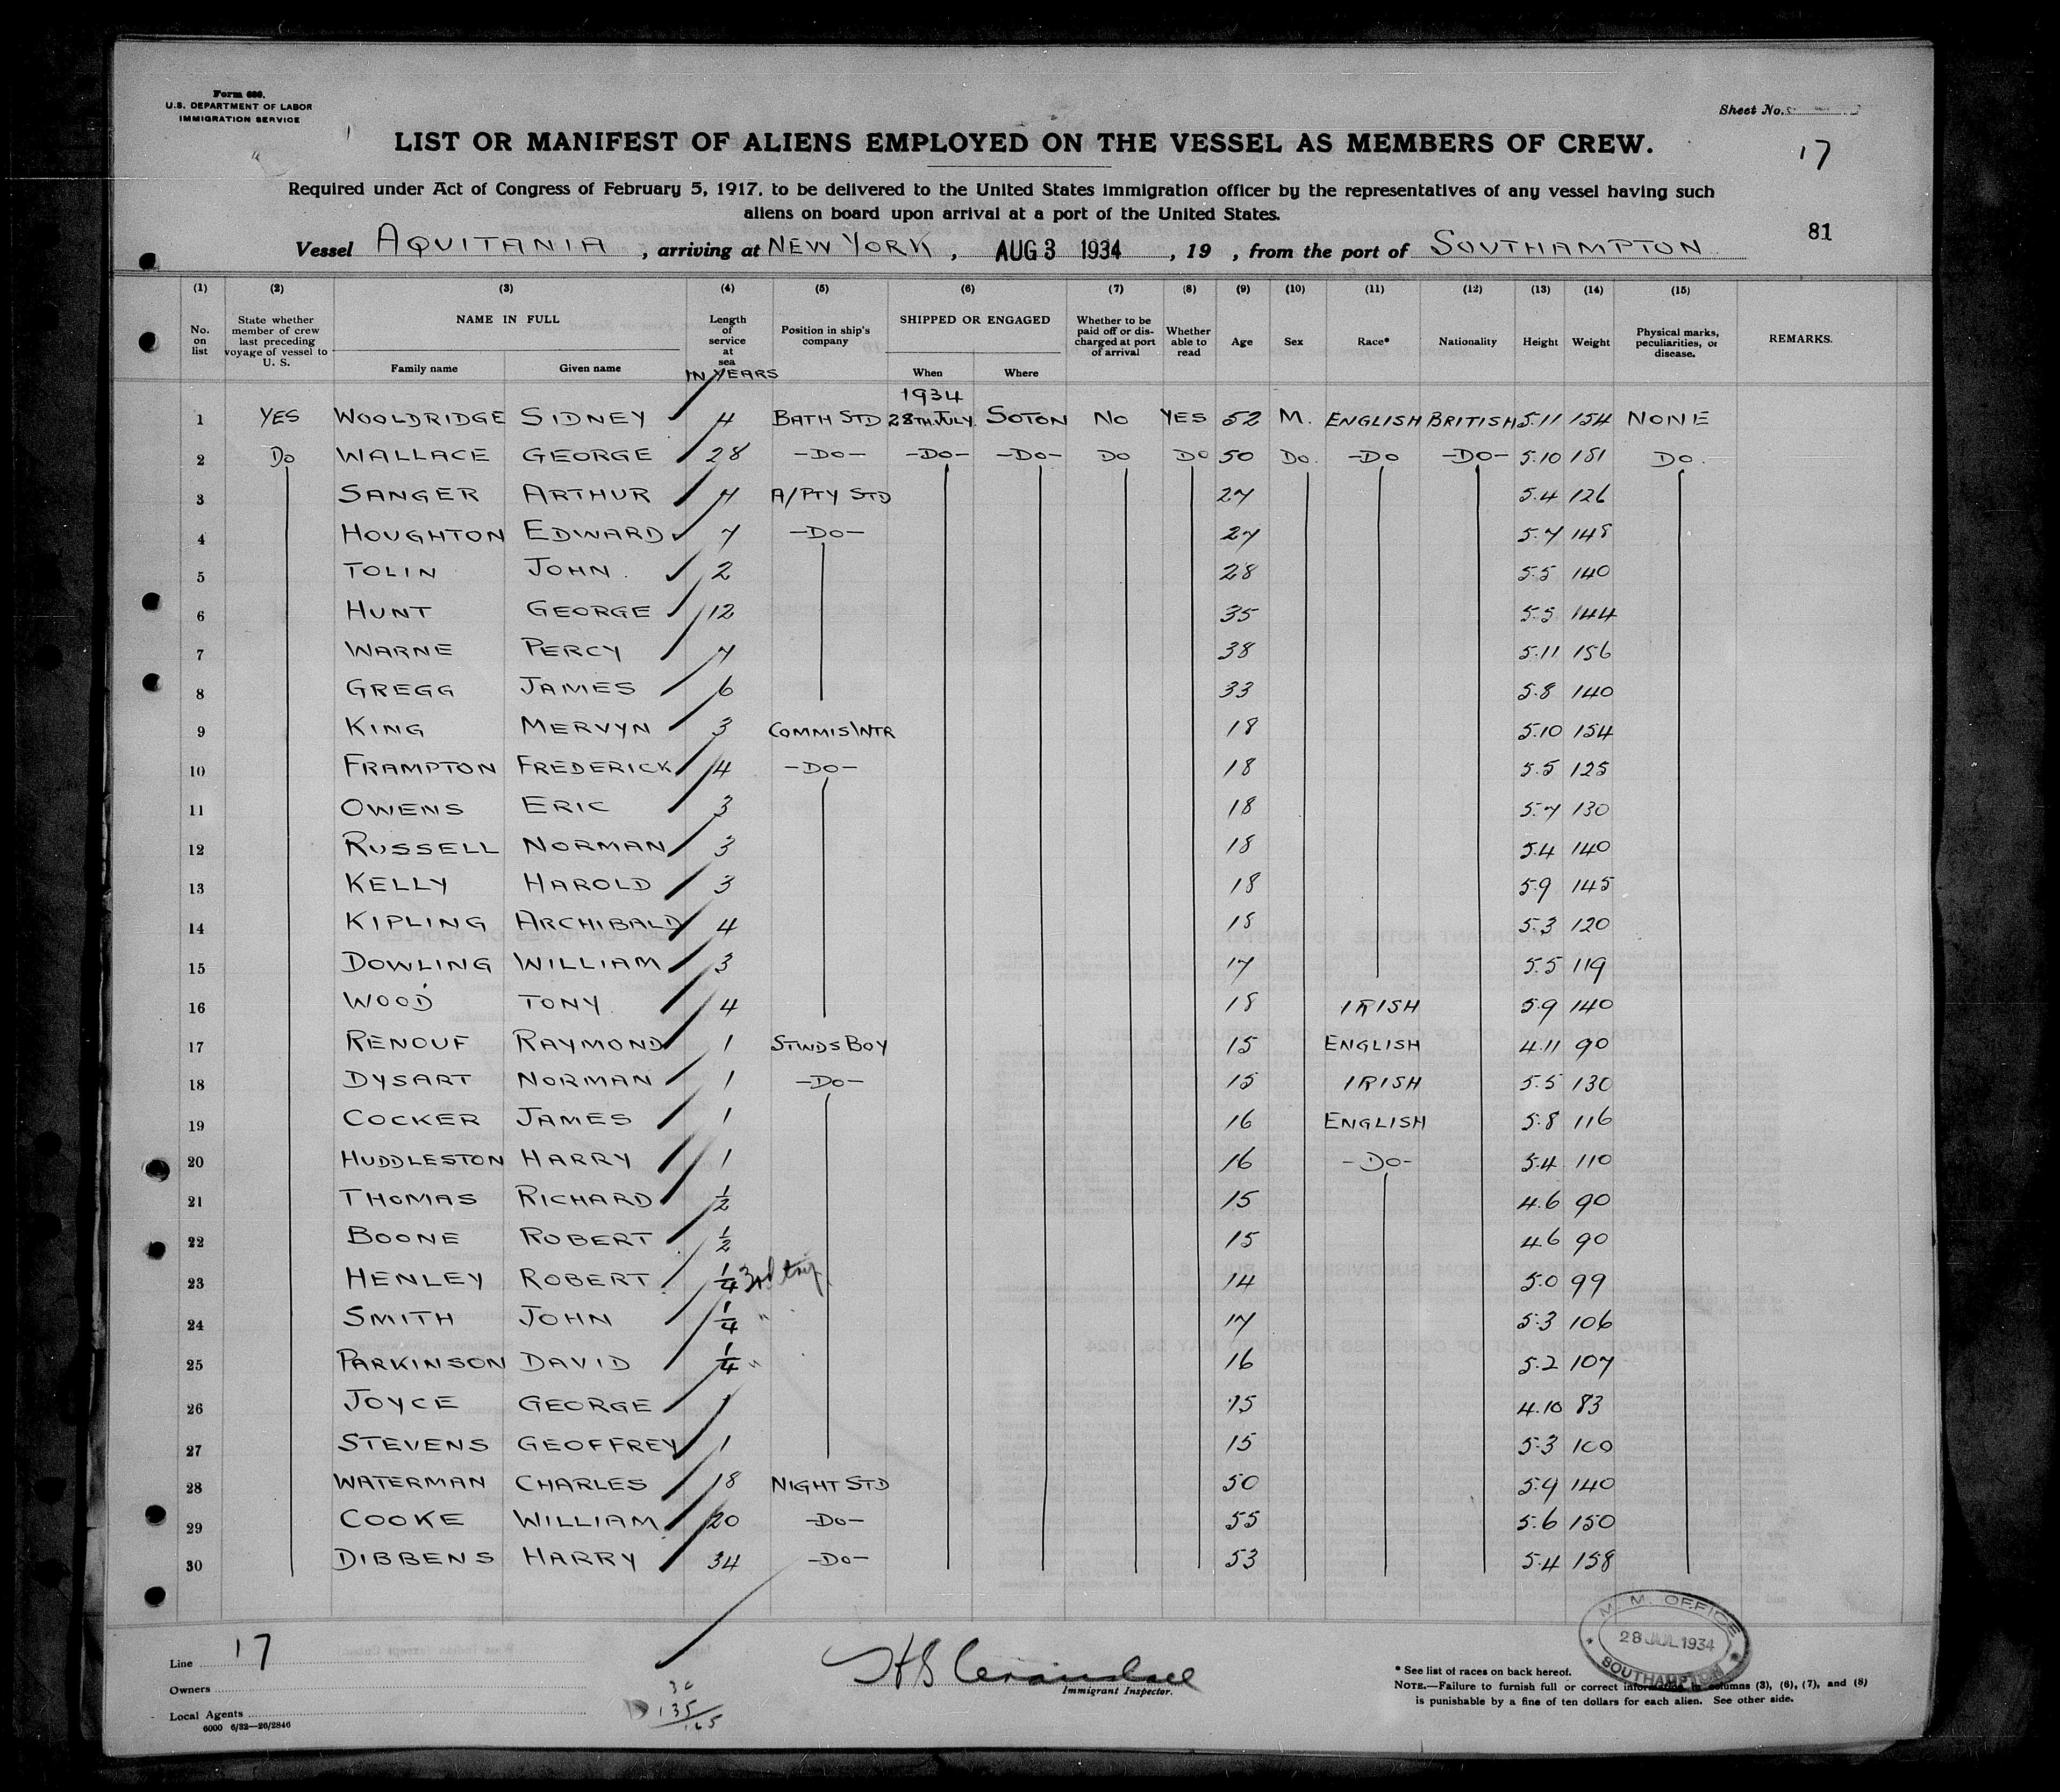 Form 689.
U.S. DEPARTMENT OF LABOR
IMMIGRATION SERVICE
Sheet No.
LIST OR MANIFEST OF ALIENS EMPLOYED ON THE VESSEL AS MEMBERS OF CREW.
17
Required under Act of Congress of February 5, 1917, to be delivered to the United States immigration officer by the representatives of any vessel having such
aliens on board upon arrival at a port of the United States.
81
Vessel AQUITANIA, arriving at NEW YORK, AUG 3 1934, 19 , from the port of SOUTHAMPTON
(1) (2) (3) (4) (5) (6) (7) (8) (9) (10) (11) (12) (13) (14) (15)
No. on list State whether member of crew last preceding voyage of vessel to U. S. NAME IN FULL Family name Given name Length of service at sea IN YEARS Position in ship's company SHIPPED OR ENGAGED When Where Whether to be paid off or discharged at port of arrival Whether able to read Age Sex Race* Nationality Height Weight Physical marks, peculiarities, or disease. REMARKS.
1934
1 YES WOOLDRIDGE SIDNEY 4 BATH STD 28TH JULY SOTON NO YES 52 M. ENGLISH BRITISH 5.11 154 NONE
2 DO WALLACE GEORGE 28 -DO- -DO- -DO- DO DO 50 DO. -DO -DO- 5.10 181 DO.
3 SANGER ARTHUR 4 A/PTY STD 27 5.4 126
4 HOUGHTON EDWARD 7 -DO- 27 5.7 148
5 TOLIN JOHN. 2 28 5.5 140
6 HUNT GEORGE 12 35 5.5 144
7 WARNE PERCY 7 38 5.11 156
8 GREGG JAMES 6 33 5.8 140
9 KING MERVYN 3 COMMIS WTR 18 5.10 154
10 FRAMPTON FREDERICK 4 -DO- 18 5.5 125
11 OWENS ERIC 3 18 5.7 130
12 RUSSELL NORMAN 3 18 5.4 140
13 KELLY HAROLD 3 18 5.9 145
14 KIPLING ARCHIBALD 4 18 5.3 120
15 DOWLING WILLIAM 3 17 5.5 119
16 WOOD TONY 4 18 IRISH 5.9 140
17 RENOUF RAYMOND 1 STWDS BOY 15 ENGLISH 4.11 90
18 DYSART NORMAN 1 -DO- 15 IRISH 5.5 130
19 COCKER JAMES 1 16 ENGLISH 5.8 116
20 HUDDLESTON HARRY 1 16 -DO- 5.4 110
21 THOMAS RICHARD 1/2 15 4.6 90
22 BOONE ROBERT 1/2 15 4.6 90
23 HENLEY ROBERT 1/4 3rd trip 14 5.0 99
24 SMITH JOHN 1/4 " 17 5.3 106
25 PARKINSON DAVID 1/4 " 16 5.2 107
26 JOYCE GEORGE 1 15 4.10 83
27 STEVENS GEOFFREY 1 15 5.3 100
28 WATERMAN CHARLES 18 NIGHT STD 50 5.9 140
29 COOKE WILLIAM 20 -DO- 55 5.6 150
30 DIBBENS HARRY 34 -DO- 53 5.4 158
M. M. OFFICE
28 JUL 1934
SOUTHAMPTON
Line 17
Owners
Local Agents
6000 6/32—26/2846
30
135
165
Immigrant Inspector.
* See list of races on back hereof.
NOTE.—Failure to furnish full or correct information in columns (3), (6), (7), and (8)
is punishable by a fine of ten dollars for each alien. See other side.